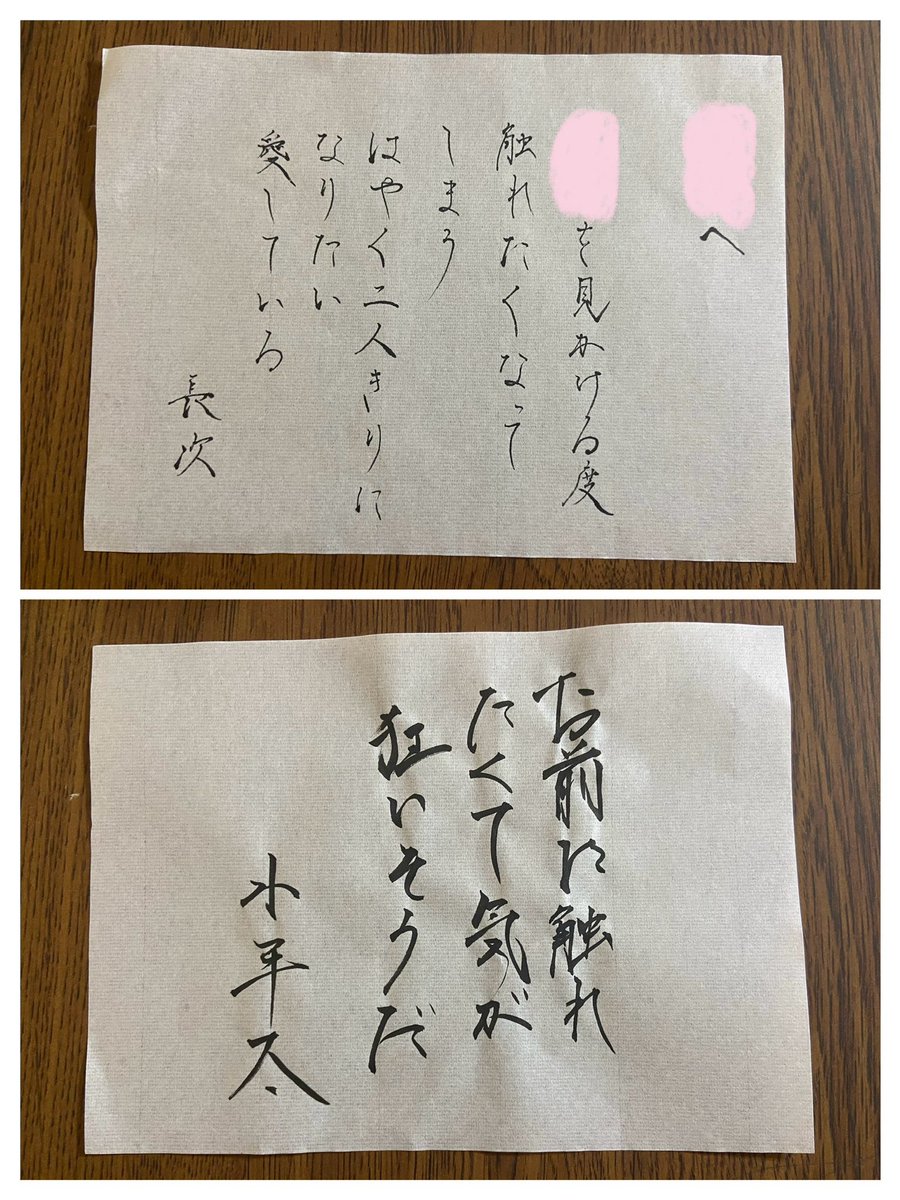 へ
を見かける度
触れたくなって
しまう
はやく二人きりに
なりたい
愛している
長次
お前に触れ
たくて気が
狂いそうだ
小平太